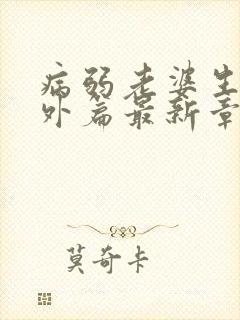 病弱老婆生
外篇最新章
莫奇卡